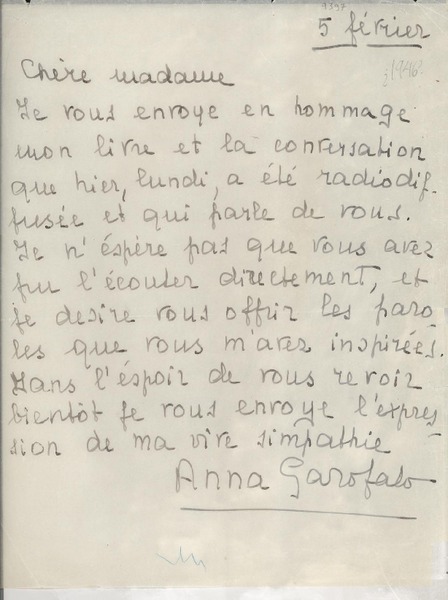 5 février
1946?
Chère madame
Je vous envoye en hommage
mon livre et la conversation
que hier, lundi, a été radiodif-
fusée et qui parle de vous.
Je n'éspère pas que vous avez
pu l'écouter directement, et
je desire vous offrir les paro-
les que vous m'avez inspirées.
Dans l'éspoir de vous revoir
bientôt je vous envoye l'expres-
sion de ma vive simpathie
Anna Garofalo